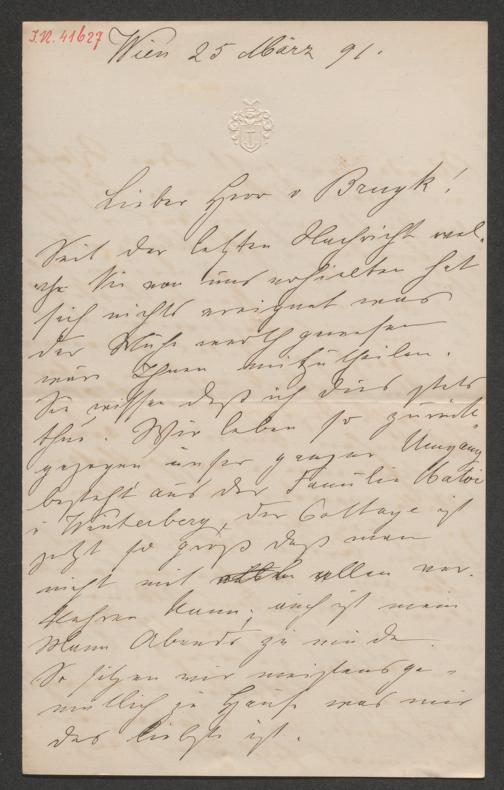 I.N. 41627
Wien 25 März 91.
Lieber Herr v Bruyk!
Seit der letzten Nachricht wel-
che Sie von uns erhielten hat
sich nichts ereignet was
der Mühe werth gewesen
wäre Ihnen mitzutheilen.
Sie wissen daß ich dies stets
thue. Wir leben so zurück-
gezogen unser ganzer Umgang
besteht aus der Familie
u Winterberg, der Cottage ist
jetzt so groß daß man
nicht mit allen ver-
kehren kann, auch ist mein
Mann Abends zu müde.
So sitzen wir meistens ge-
mütlich zu Hause was mir
das liebste ist.